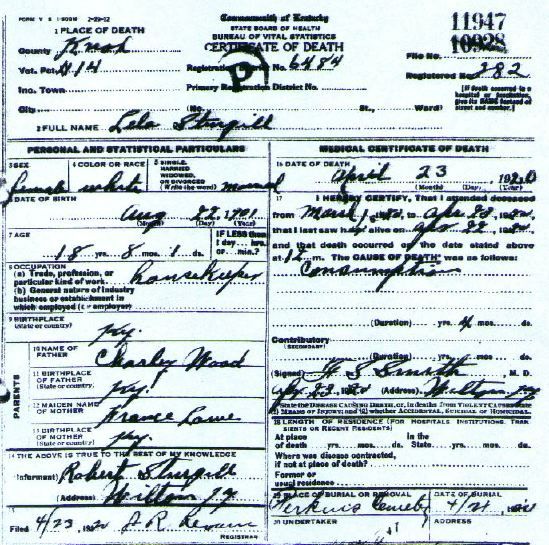 FORM V S 1-500M 2-29-12
Commonwealth of Kentucky
STATE BOARD OF HEALTH
BUREAU OF VITAL STATISTICS
CERTIFICATE OF DEATH
11947
10928
1 PLACE OF DEATH
County Knox
Vot. Pct. #14
Inc. Town
City
Registration District No. 6484
Primary Registration District No.
P
File No.
Registered No. 282
[If death occurred in a hospital or institution, give its NAME instead of street and number.]
(No. St., Ward)
2 FULL NAME Lela Sturgill
PERSONAL AND STATISTICAL PARTICULARS
3 SEX
female
4 COLOR OR RACE
white
5 SINGLE, MARRIED, WIDOWED, OR DIVORCED (Write the word)
married
6 DATE OF BIRTH
Aug 22, 1901
(Month) (Day) (Year)
7 AGE
18 yrs. 8 mos. 1 ds.
IF LESS than 1 day ... hrs. or min.?
8 OCCUPATION
(a) Trade, profession, or particular kind of work
housekeeper
(b) General nature of industry business or establishment in which employed (or employer)
9 BIRTHPLACE
(State or country)
Ky.
PARENTS
10 NAME OF FATHER
Charley Wood
11 BIRTHPLACE OF FATHER
(State or country)
Ky.
12 MAIDEN NAME OF MOTHER
Lowe
13 BIRTHPLACE OF MOTHER
(State or country)
Ky.
14 THE ABOVE IS TRUE TO THE BEST OF MY KNOWLEDGE
(Informant) Robert Sturgill
(Address) Wilton Ky
15
Filed 4/23, 1920
REGISTRAR
MEDICAL CERTIFICATE OF DEATH
16 DATE OF DEATH
April 23 1920
(Month) (Day) (Year)
17 I HEREBY CERTIFY, That I attended deceased
from 1920 to Apr 23, 1920,
that I last saw h alive on Apr 22, 1920,
and that death occurred on the date stated above
at 12 m. The CAUSE OF DEATH was as follows:
Consumption
(Duration) yrs. mos. ds.
Contributory
(SECONDARY)
(Duration) yrs. mos. ds.
(Signed) Smith, M. D.
Apr 23, 1920 (Address) Wilton Ky
State the DISEASE CAUSING DEATH, or, in deaths from VIOLENT CAUSES, state (1) MEANS OF INJURY; and (2) whether ACCIDENTAL, SUICIDAL OR HOMICIDAL.
18 LENGTH OF RESIDENCE (FOR HOSPITALS, INSTITUTIONS, TRANSIENTS OR RECENT RESIDENTS)
At place of death yrs. mos. ds. In the State yrs. mos. ds.
Where was disease contracted, if not at place of death?
Former or usual residence
19 PLACE OF BURIAL OR REMOVAL
Perkins Cemety
DATE OF BURIAL
4/24, 1920
20 UNDERTAKER
ADDRESS